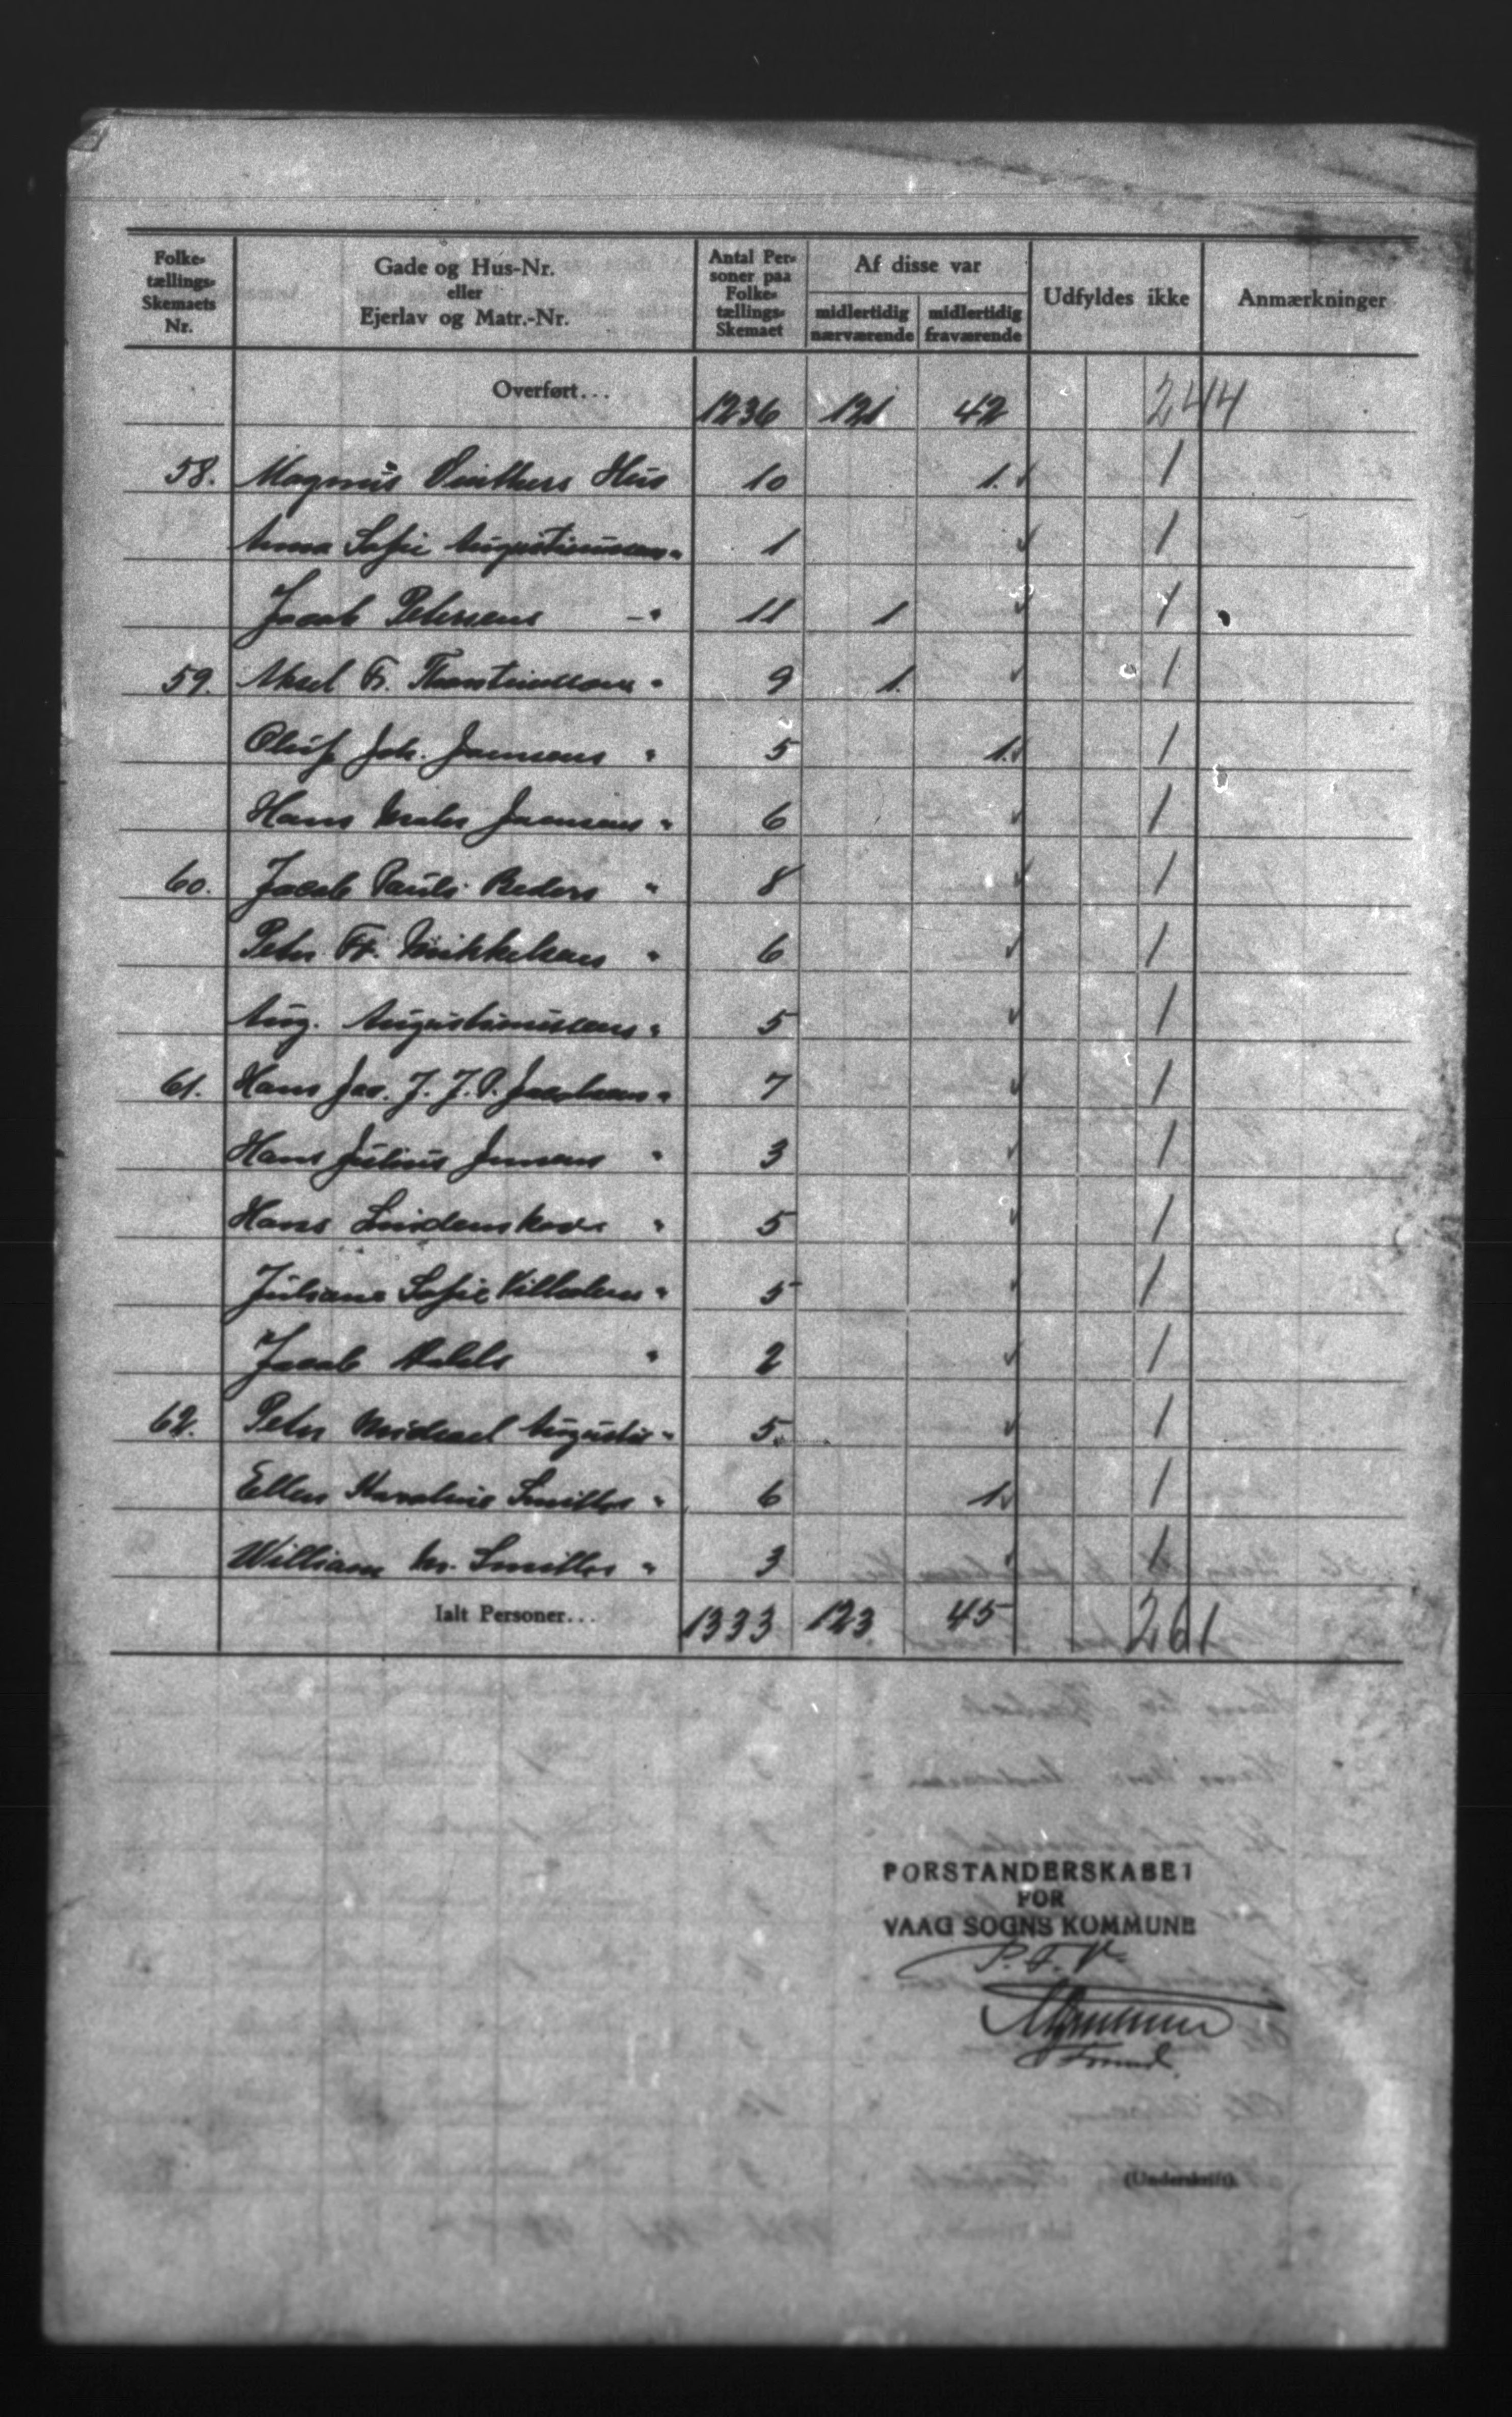 Folke-
tællings-
Skemaets
Nr.
Gade og Hus-Nr.
eller
Ejerlav og Matr.-Nr.
Antal Per-
soner paa
Folke-
tællings-
Skemaet
Af disse var
midlertidig
nærværende
midlertidig
fraværende
Udfyldes ikke
Anmærkninger
Overført... 1236 121 42 244
58. Magnus Vinthers Hus 10 1. 1
Anna Sofie Augustinussens " 1 1
Jacob Petersens -" 11 1 1
59. Aksel Fr. Thorsteinssons " 9 1. 1
Oluf Joh. Joensens " 5 1. 1
Hans Joensens " 6 1
60. Jacob Pauli Beders " 8 1
Peter Fr. Mikkelsens " 6 1
Aug. Augustinussens " 5 1
61. Hans Jac. J. J. P. Jacobsens " 7 1
Hans Julius Jensens " 3 1
Hans Lindenskovs " 5 1
Juliane Sofie Vilhelms " 5 1
Jacob Dahls " 2 1
62. Peter Michael Augusts " 5. 1
Ellen Karoline Smiths " 6 1. 1
William M. Smiths " 3 1
Ialt Personer... 1333 123 45 261
FORSTANDERSKABET
FOR
VAAG SOGNS KOMMUNE
P. F. V.
Formd.
(Underskrift).